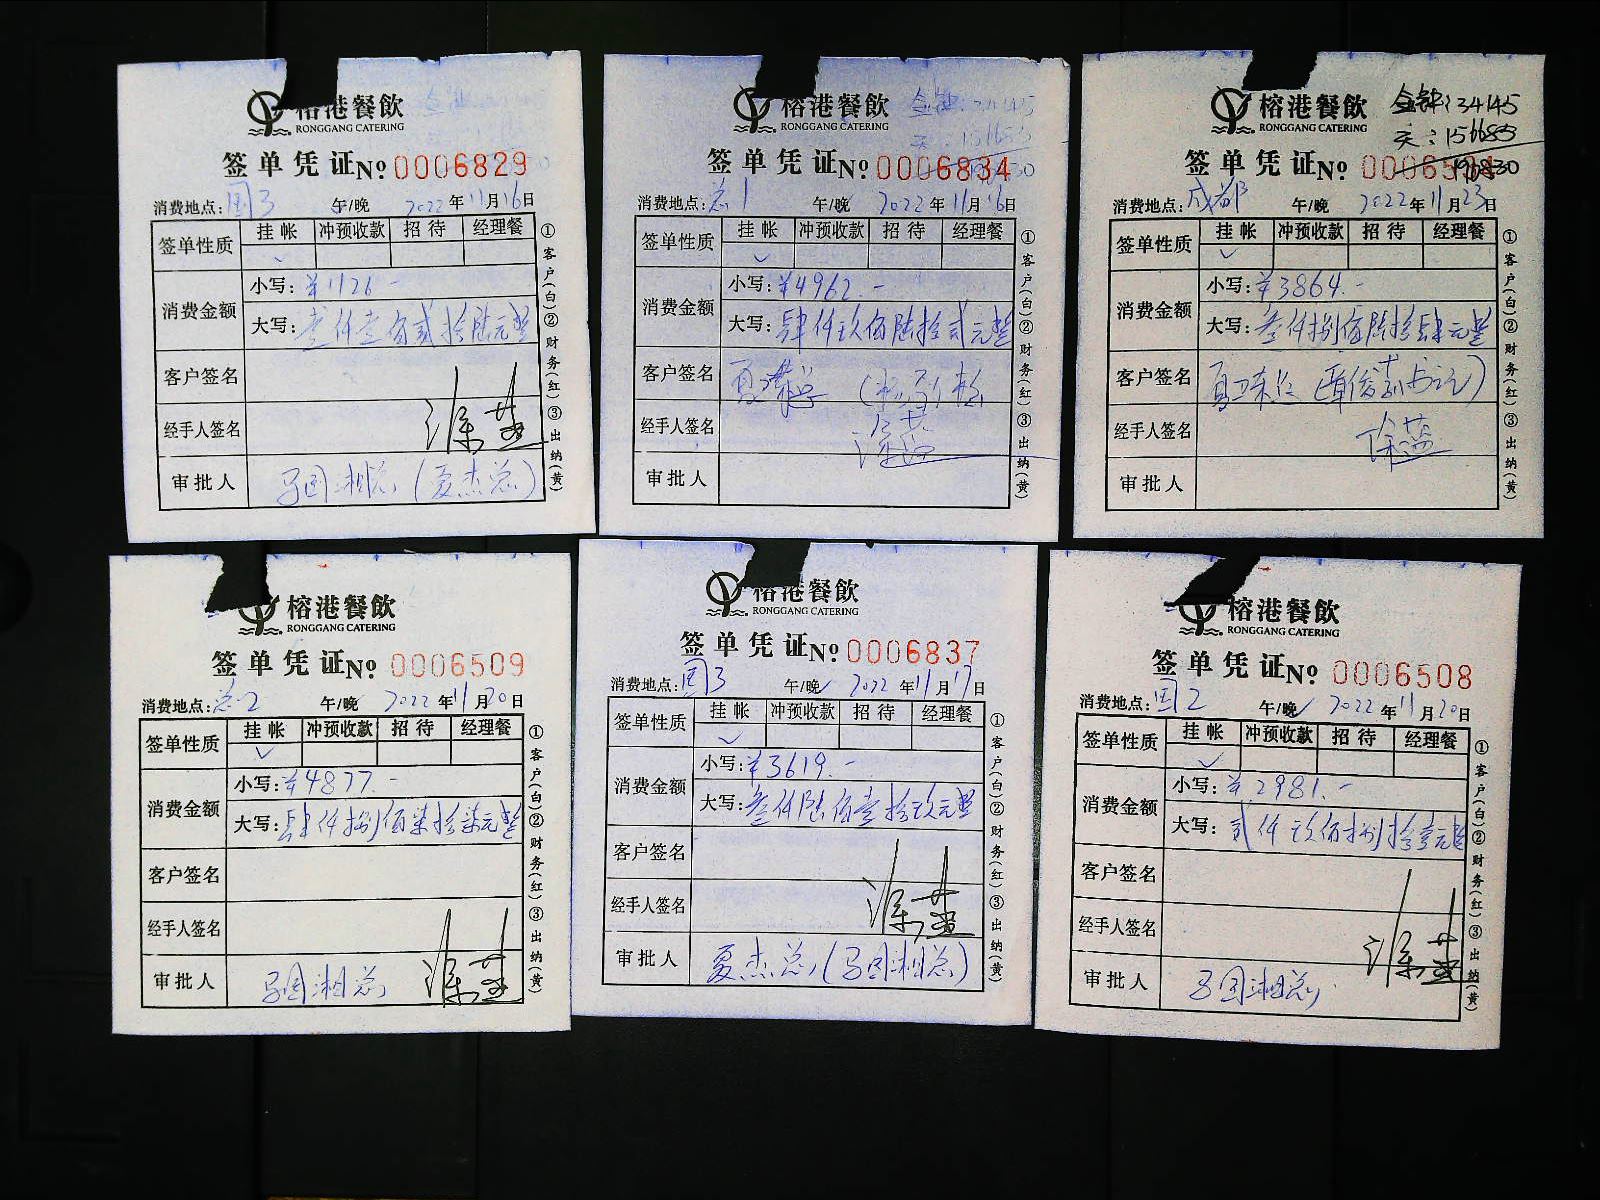 榕港餐飲
RONGGANG CATERING
签单凭证№ 0006829
消费地点：国3 午/晚 2022年11月16日
签单性质 挂帐 冲预收款 招待 经理餐
✓
消费金额 小写：¥1126.-
大写：壹仟壹佰贰拾陆元整
客户签名
经手人签名 徐蓝
审批人 马国湘总（夏杰总）
①客户(白)②财务(红)③出纳(黄)
榕港餐飲
RONGGANG CATERING
签单凭证№ 0006834
消费地点：总1 午/晚 2022年11月16日
签单性质 挂帐 冲预收款 招待 经理餐
✓
消费金额 小写：¥4962.-
大写：肆仟玖佰陆拾贰元整
客户签名
经手人签名
审批人
①客户(白)②财务(红)③出纳(黄)
榕港餐飲
RONGGANG CATERING
34145
156685
签单凭证№
消费地点：成都 午/晚 2022年11月23日
签单性质 挂帐 冲预收款 招待 经理餐
✓
消费金额 小写：¥3864.-
大写：叁仟捌佰陆拾肆元整
客户签名
经手人签名 徐蓝
审批人
①客户(白)②财务(红)③出纳(黄)
榕港餐飲
RONGGANG CATERING
签单凭证№ 0006509
消费地点：总2 午/晚 2022年11月20日
签单性质 挂帐 冲预收款 招待 经理餐
✓
消费金额 小写：¥4877.-
大写：肆仟捌佰柒拾柒元整
客户签名
经手人签名
审批人 马国湘总 徐蓝
①客户(白)②财务(红)③出纳(黄)
榕港餐飲
RONGGANG CATERING
签单凭证№ 0006837
消费地点：国3 午/晚✓ 2022年11月17日
签单性质 挂帐 冲预收款 招待 经理餐
✓
消费金额 小写：¥3619.-
大写：叁仟陆佰壹拾玖元整
客户签名
经手人签名 徐蓝
审批人 夏杰总（马国湘总）
①客户(白)②财务(红)③出纳(黄)
榕港餐飲
RONGGANG CATERING
签单凭证№ 0006508
消费地点：国2 午/晚✓ 2022年11月20日
签单性质 挂帐 冲预收款 招待 经理餐
✓
消费金额 小写：¥2981.-
大写：贰仟玖佰捌拾壹元整
客户签名
经手人签名 徐蓝
审批人 马国湘总
①客户(白)②财务(红)③出纳(黄)